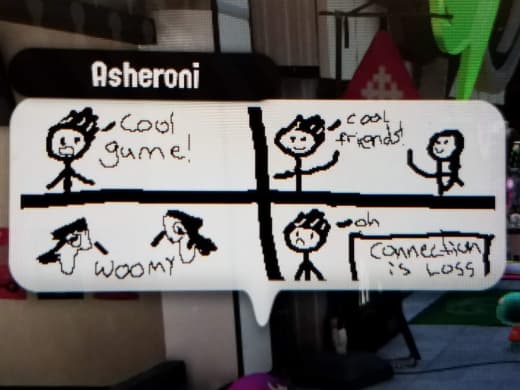 Asheroni
Cool
game!
cool
friends!
WOOMY
oh
Connection
is Loss